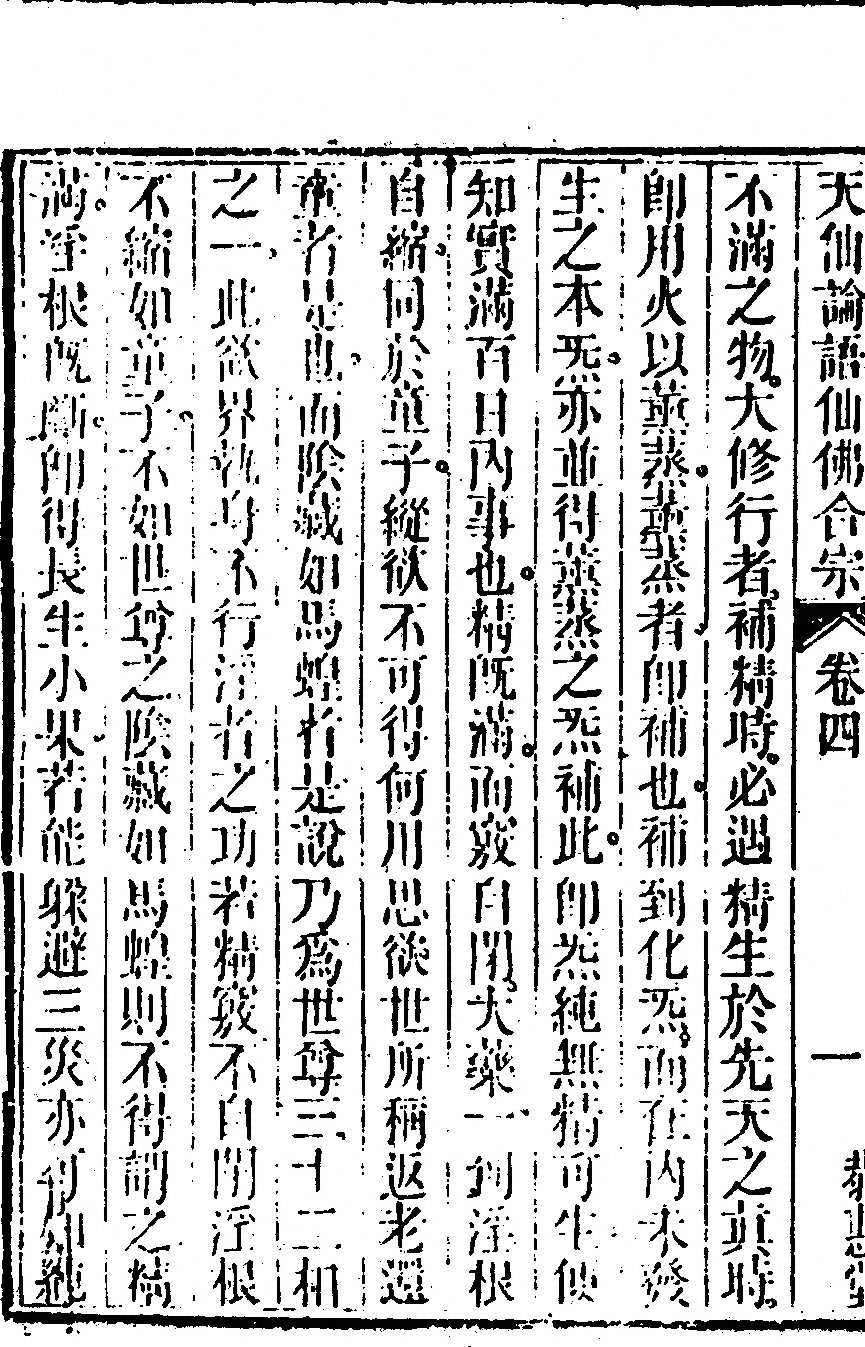 天仙論語仙佛合宗 卷四 一
不滿之物。大修行者、補精時。必遇精生於先天之真時。
卽用火以薰蒸。薰蒸者、卽補也。補到化炁。而在內未發
生之本炁。亦並得薰蒸之炁補此。卽炁純無精可生便
知實滿百日內事也。精旣滿。而竅自閉。大藥一到淫根
自縮。同於童子。縱欲不可得何用思欲世所稱返老還
童者是也。而陰藏如馬蝗者是說乃爲世尊三十二相
之一、此欲界執身不行淫者之功若精竅不自閉淫根
不縮如童子。不如世尊之陰藏如馬蝗則不得謂之精
滿。淫根旣斷。卽得長生小果、若能躲避三災亦可如純